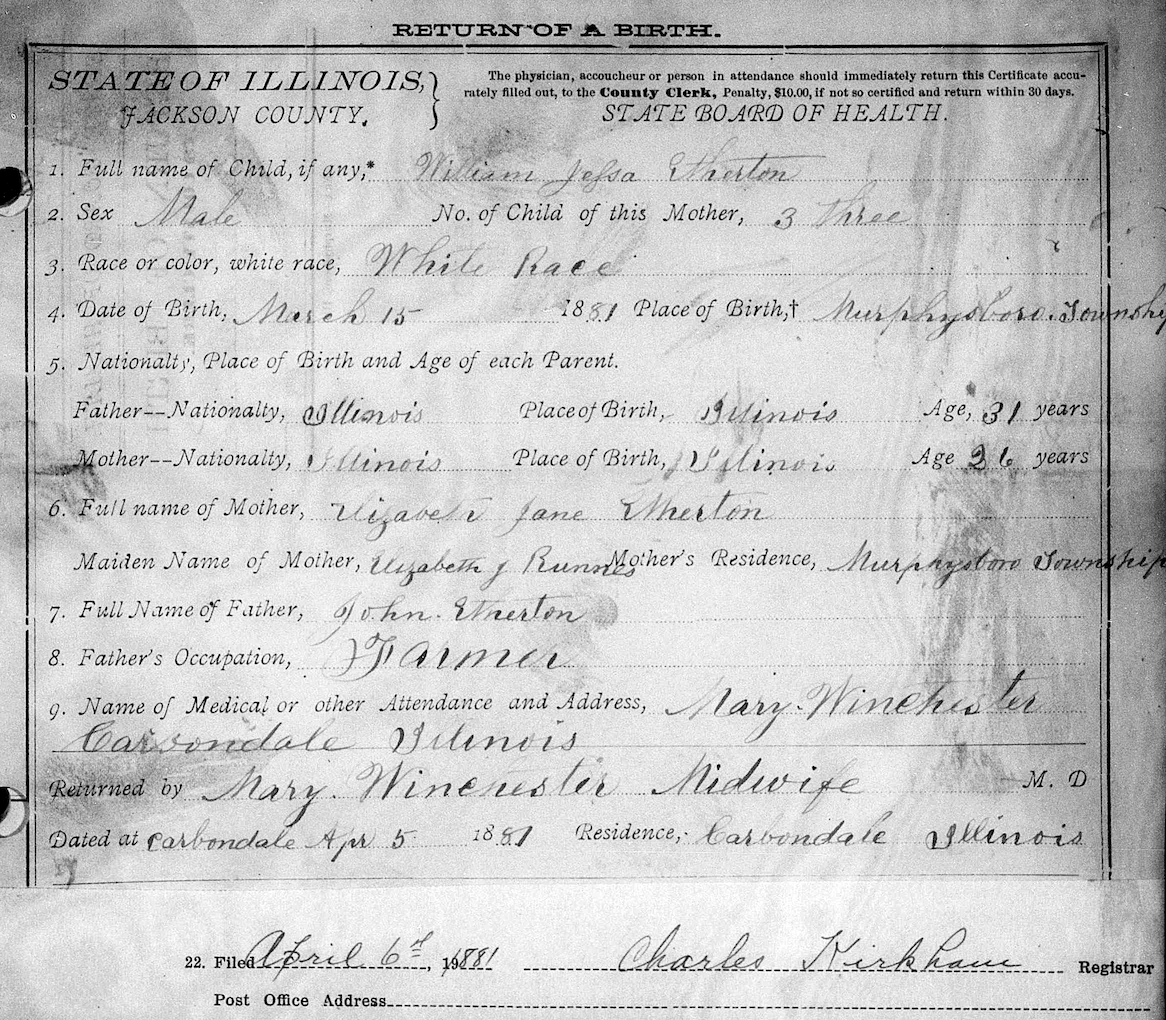 RETURN OF A BIRTH.
STATE OF ILLINOIS, } The physician, accoucheur or person in attendance should immediately return this Certificate accu-
rately filled out, to the County Clerk, Penalty, $10.00, if not so certified and return within 30 days.
JACKSON COUNTY. STATE BOARD OF HEALTH.
1. Full name of Child, if any,* William Jessa Etherton
2. Sex Male No. of Child of this Mother, 3 three
3. Race or color, white race, White Race
4. Date of Birth, March 15 1881 Place of Birth,† Murphysboro. Township
5. Nationalty, Place of Birth and Age of each Parent.
Father--Nationalty, Illinois Place of Birth, Illinois Age, 31 years
Mother--Nationalty, Illinois Place of Birth, Illinois Age 26 years
6. Full name of Mother, Elizabeth Jane Etherton
Maiden Name of Mother, Elizabeth J Mother's Residence, Murphysboro Township
7. Full Name of Father, John. Etherton
8. Father's Occupation, Farmer
9. Name of Medical or other Attendance and Address, Mary. Winchester
Carbondale Illinois
Returned by Mary. Winchester Midwife M. D
Dated at Carbondale Apr 5 1881 Residence, Carbondale Illinois
22. Filed April 6th, 1881 Charles Kirkham Registrar
Post Office Address